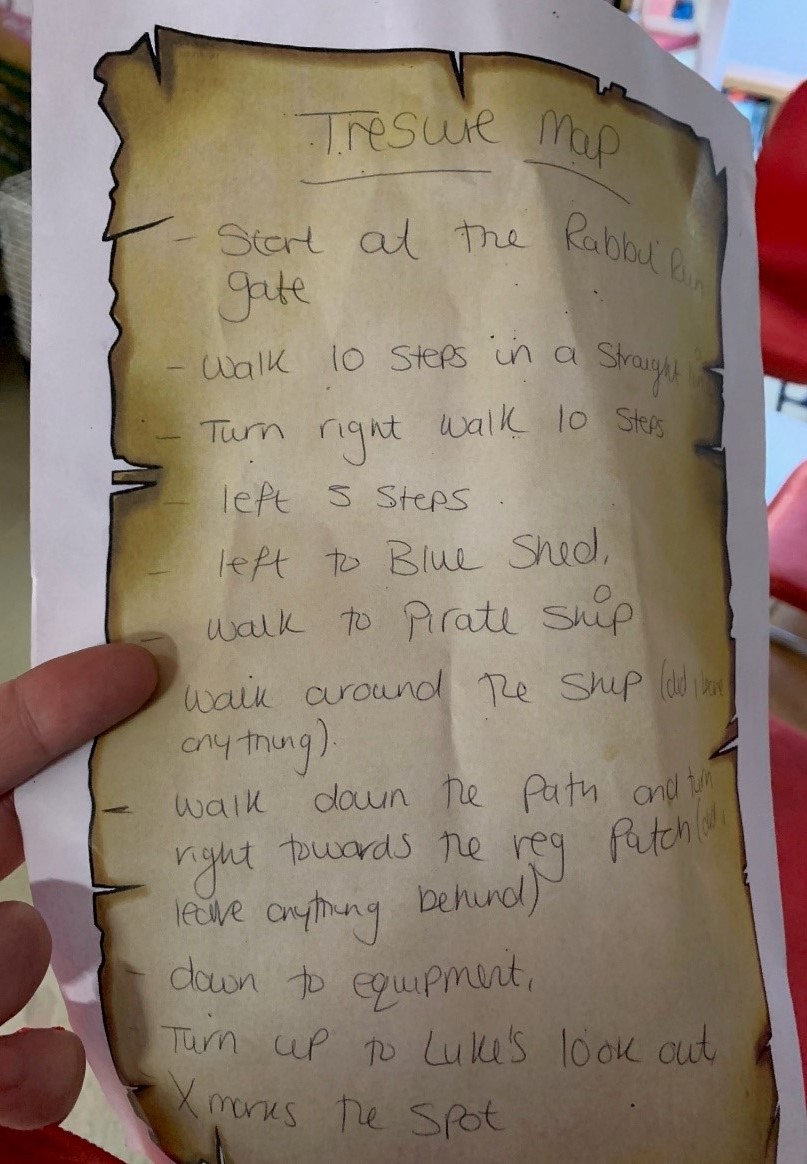 Tresure Map
- Start at the Rabbit Run
gate
- Walk 10 Steps in a Straight
- Turn right walk 10 Steps
- left 5 Steps.
- left to Blue Shed,
- walk to Pirate Ship
walk around the Ship (did i leave
anything).
- walk down the Path and turn
right towards the reg Patch (did i
leave anything behind)
- down to equipment,
Turn up to Luke's look out
X marks the Spot